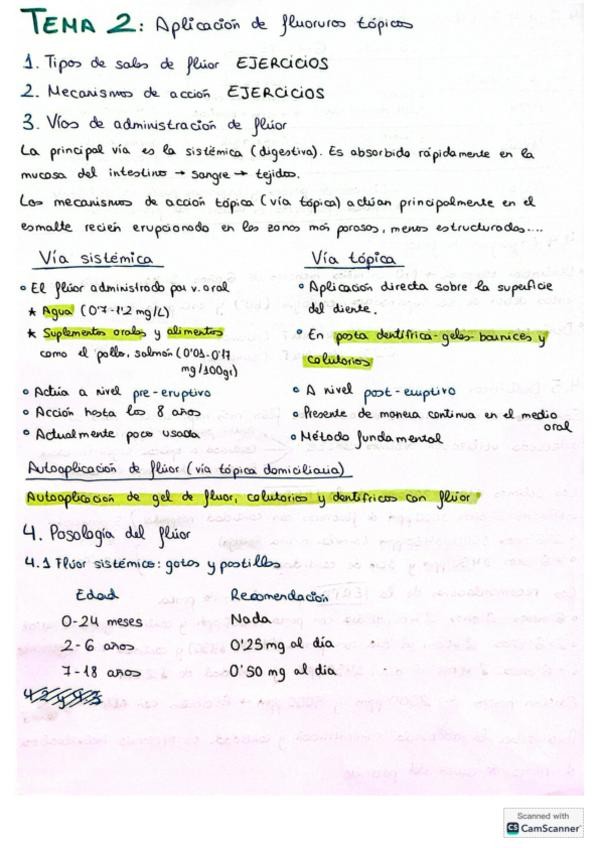 TEMA 2: Aplicación de fluoruros tópicos
1. Tipos de sales de flúor EJERCICIOS
2. Mecanismos de acción EJERCICIOS
3. Vías de administración de flúor
La principal vía es la sistémica (digestiva). Es absorbido rápidamente en la
mucosa del intestino → sangre → tejidos.
Los mecanismos de acción tópica (vía tópica) actúan principalmente en el
esmalte recién erupcionado en las zonas más porosas, menos estructuradas....
Vía sistémica
• El flúor administrado por v. oral
★ Agua (0'7-1'2 mg/L)
★ Suplementos orales y alimentos
como el pollo, salmón (0'01-0'17
mg/100gr)
• Actúa a nivel pre-eruptivo
• Acción hasta los 8 años
• Actualmente poco usada
Vía tópica
• Aplicación directa sobre la superficie
del diente.
• En pasta dentífrica-geles-barnices y
colutorios
• A nivel post-eruptivo
• Presente de manera continua en el medio
oral
• Método fundamental
Autoaplicación de flúor (vía tópica domiciliaria)
Autoaplicación de gel de fluor, colutorios y dentífricos con flúor
4. Posología del flúor
4.1 Flúor sistémico: gotas y pastillas
Edad Recomendación
0-24 meses Nada
2-6 años 0'25 mg al día
7-18 años 0'50 mg al día
Scanned with
CS CamScanner